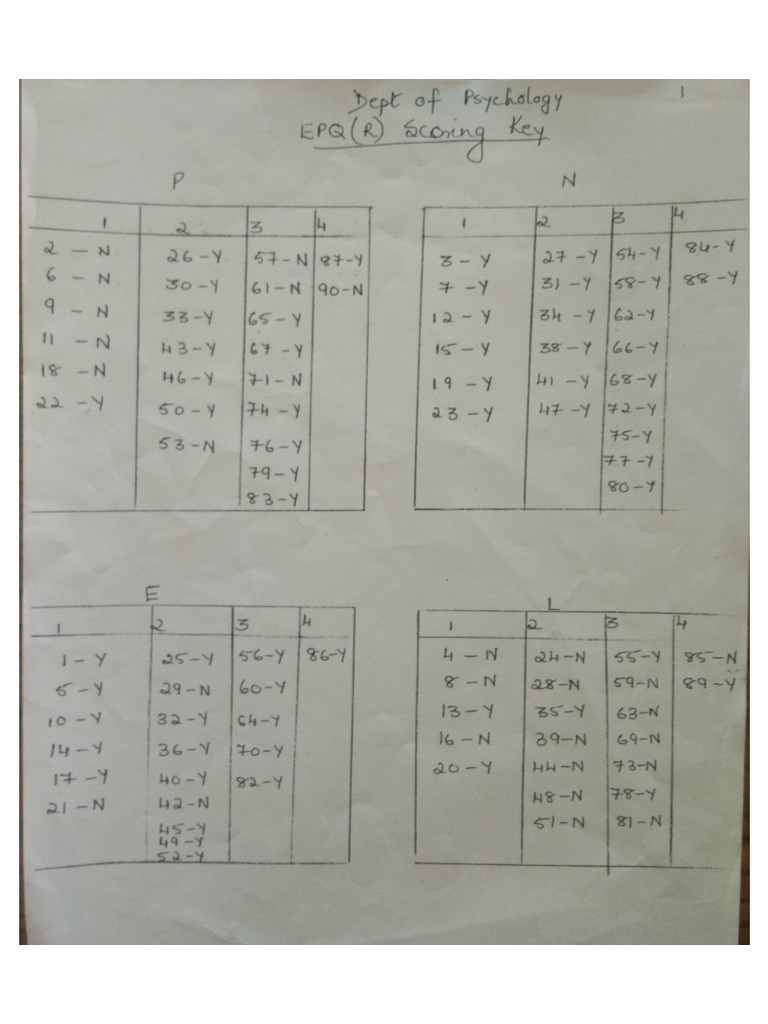 Dept of Psychology 1
EPQ(R) Scoring Key
P
1 2 3 4
2 - N 26-Y 57-N 87-Y
6 - N 30-Y 61-N 90-N
9 - N 33-Y 65-Y
11 - N 43-Y 67-Y
18 - N 46-Y 71-N
22 - Y 50-Y 74-Y
53-N 76-Y
79-Y
83-Y
N
1 2 3 4
3 - Y 27-Y 54-Y 84-Y
7 - Y 31-Y 58-Y 88-Y
12 - Y 34-Y 62-Y
15 - Y 38-Y 66-Y
19 - Y 41-Y 68-Y
23 - Y 47-Y 72-Y
75-Y
77-Y
80-Y
E
1 2 3 4
1-Y 25-Y 56-Y 86-Y
5-Y 29-N 60-Y
10-Y 32-Y 64-Y
14-Y 36-Y 70-Y
17-Y 40-Y 82-Y
21-N 42-N
45-Y
49-Y
52-Y
L
1 2 3 4
4-N 24-N 55-Y 85-N
8-N 28-N 59-N 89-Y
13-Y 35-Y 63-N
16-N 39-N 69-N
20-Y 44-N 73-N
48-N 78-Y
51-N 81-N